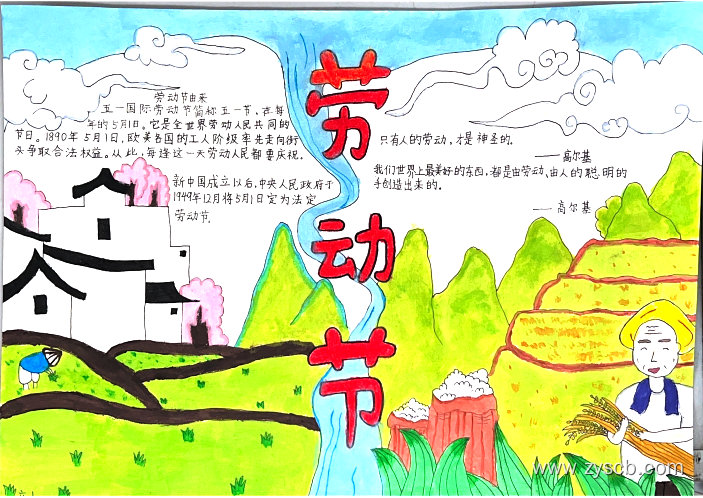 劳动节
劳动节由来
五一国际劳动节简称五一节，在每
年的5月1日。它是全世界劳动人民共同的
节日。1890年5月1日，欧美各国的工人阶级率先走向街
头争取合法权益。从此，每逢这一天劳动人民都要庆祝.
新中国成立以后,中央人民政府于
1949年12月将5月1日定为法定
劳动节.
只有人的劳动，才是神圣的.
——高尔基
我们世界上最美好的东西，都是由劳动、由人的聪明的
手创造出来的.
——高尔基
www.zyscb.com